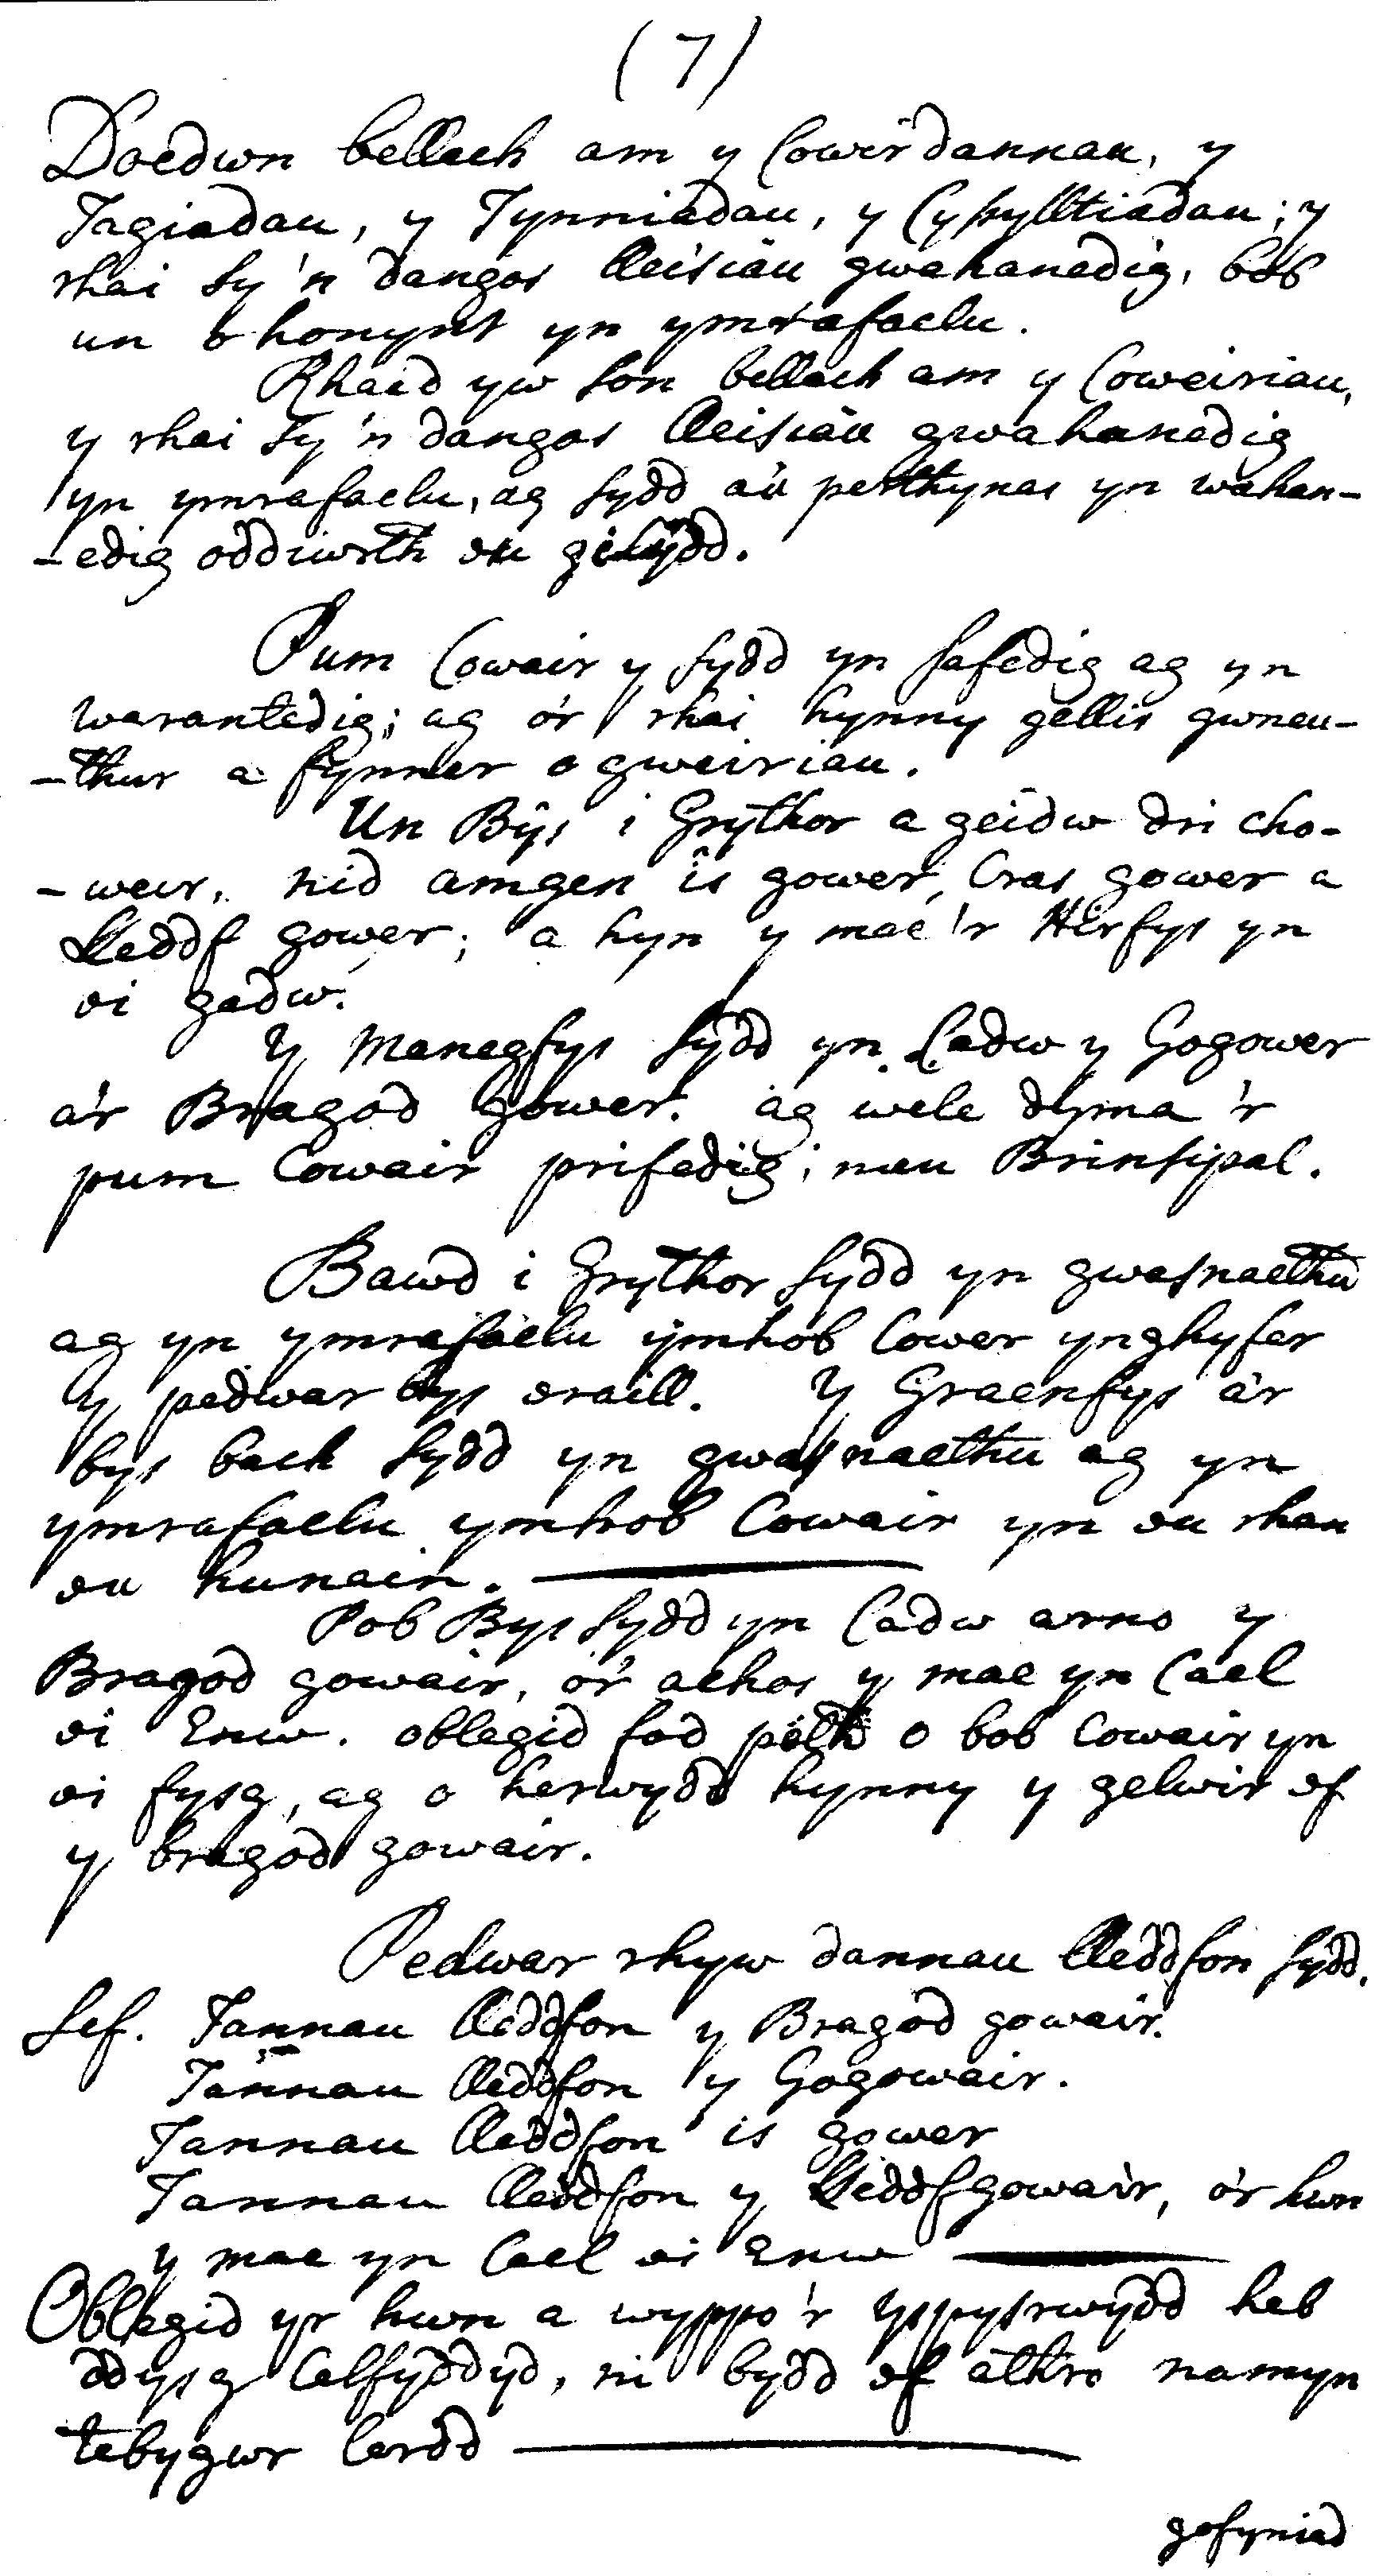 (7)
Doedwn bellach am y Cower dannau, y
Tagiadau, y Tynniadau, y Cysylltiadau; y
rhai sy'n dangos lleisiau gwahanedig, bob
un o honynt yn ymrafaelu.
Rhaid yw son bellach am y Coweiriau,
y rhai sy'n dangos lleisiau gwahanedig
yn ymrafaelu, ag sydd a'u perthynas yn wahan-
-edig oddiwrth eu gilydd.
Pum Cowair y sydd yn safedig ag yn
warantedig; ag o'r rhai hynny gellir gwneu-
-thur a fynner o gweiriau.
Un Bŷs i Grythor a geidw dri cho-
-weir, nid amgen îs gower, Cras gower a
Lleddf gower; a hyn y mae'r Hirfys yn
ei gadw.
Y Manegfys sydd yn Cadw y Gogower
a'r Bragod gower. ag wele dyma'r
pum Cowair prifedig; neu Brinsipal.
Bawd i Grythor sydd yn gwasnaethu
ag yn ymrafaelu ymhob Cower ynghyfer
y pedwar bys eraill. Y Graenfys a'r
bys bach sydd yn gwasnaethu ag yn
ymrafaelu ymhob Cowair yn eu rhan
eu hunain.
Pob Bys sydd yn Cadw arno y
Bragod gowair, o'r achos y mae yn Cael
ei Enw. oblegid fod peth o bob Cowair yn
ei fysg, ag o herwydd hynny y gelwir ef
y bragod gowair.
Pedwar rhyw dannau lleddfon sydd.
Sef. Tannau lleddfon y Bragod gowair.
Tannau lleddfon y Gogowair.
Tannau lleddfon is gower
Tannau lleddfon y Lleddfgowair, o'r hwn
y mae yn Cael ei Enw
Oblegid yr hwn a wyppo'r yspysrwydd heb
ddysg Celfyddyd, ni bydd ef athro namyn
tebygwr Cerdd
gofyniad